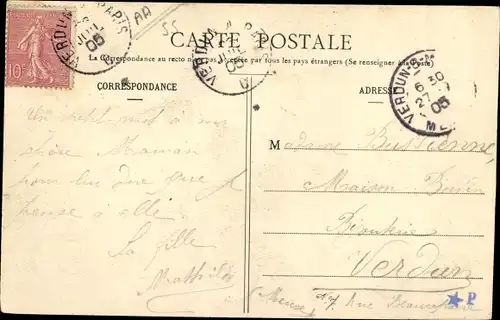 CARTE POSTALE
La Correspondance au recto n'est pas acceptée par tous les pays étrangers (Se renseigner à la Poste)
CORRESPONDANCE
ADRESSE
Un petit mot à ma
chère Maman
pour lui dire que je
pense à elle.
Sa fille
Mathilde
Madame
Maison
Bijouterie
Verdun
(Meuse) Rue
10c
VERDUN PARIS
05
VERDUN PARIS
05
VERDUN
6 30
27
05
P